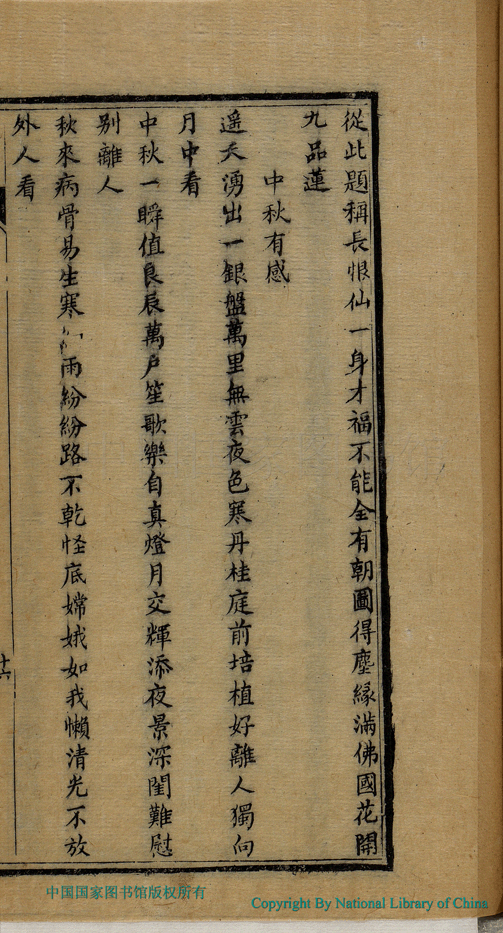 從此題稱長恨仙一身才福不能全有朝圖得塵緣滿佛國花開
九品蓮
中秋有感
遥天湧出一銀盤萬里無雲夜色寒丹桂庭前培植好離人獨向
月中看
中秋一瞬值良辰萬戶笙歌樂自真燈月交輝添夜景深閨難慰
别離人
秋來病骨易生寒雨紛紛路不乾怪底嫦娥如我懶清光不放
外人看
十六
中国国家图书馆版权所有
Copyright By National Library of China